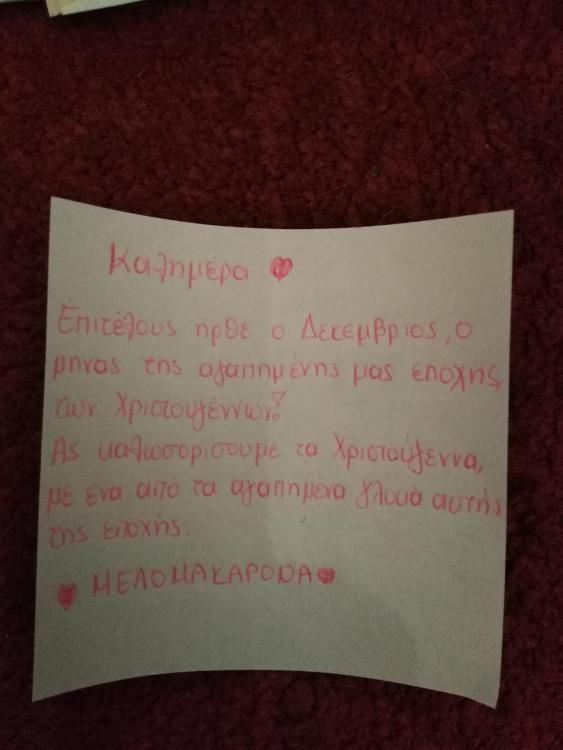 Καλημέρα
Επιτέλους ηρθε ο Δεκεμβριος, ο
μηνας της αγαπημένης μας εποχής,
των Χριστουγέννων!
Ας καλωσορισουμε τα Χριστούγεννα,
με ενα από τα αγαπημένα γλυκά αυτής
της εποχής.
ΜΕΛΟΜΑΚΑΡΟΝΑ